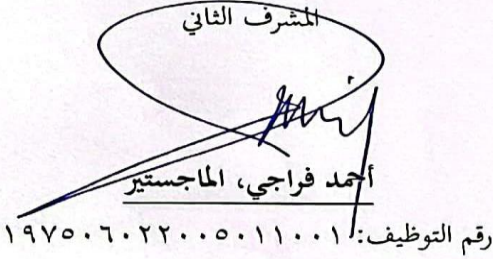 المشرف الثاني
أحمد فراجي، الماجستير
رقم التوظيف: ١٩٧٥٠٦٠٢٢٠٠٥٠١١٠٠١